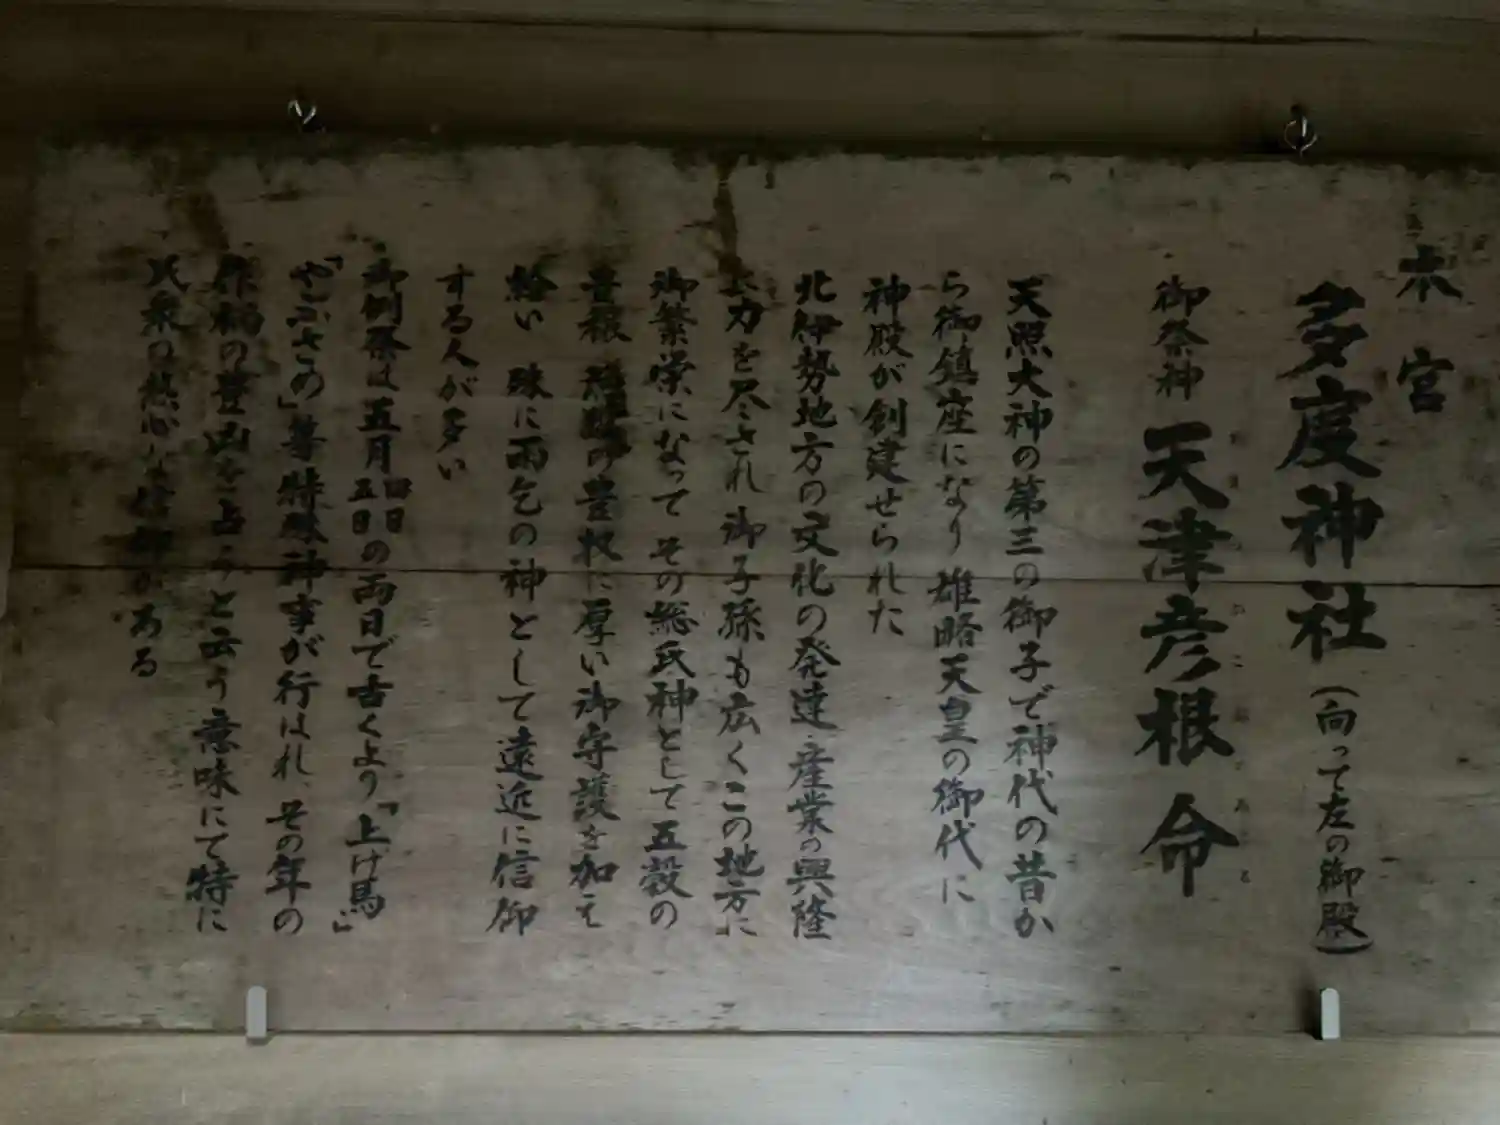 本宮
多度神社(向って左の御殿)
御祭神 天津彦根命
あま つ ひこ ね の みこと
天照大神の第三の御子で神代の昔か
ら御鎮座になり 雄略天皇の御代に
神殿が創建せられた
北伊勢地方の文化の発達、産業の興隆
に力を尽され 御子孫も広くこの地方に
御繁栄になって その総氏神として五穀の
豊穣 の豊収に厚い御守護を加え
給い 殊に雨乞の神として遠近に信仰
する人が多い
御例祭は五月四日五日の両日で古くより「上げ馬」
「やぶさめ」等特殊神事が行はれ、その年の
作柄の豊凶を占うと云う意味にて特に
氏衆の熱心な信仰がある